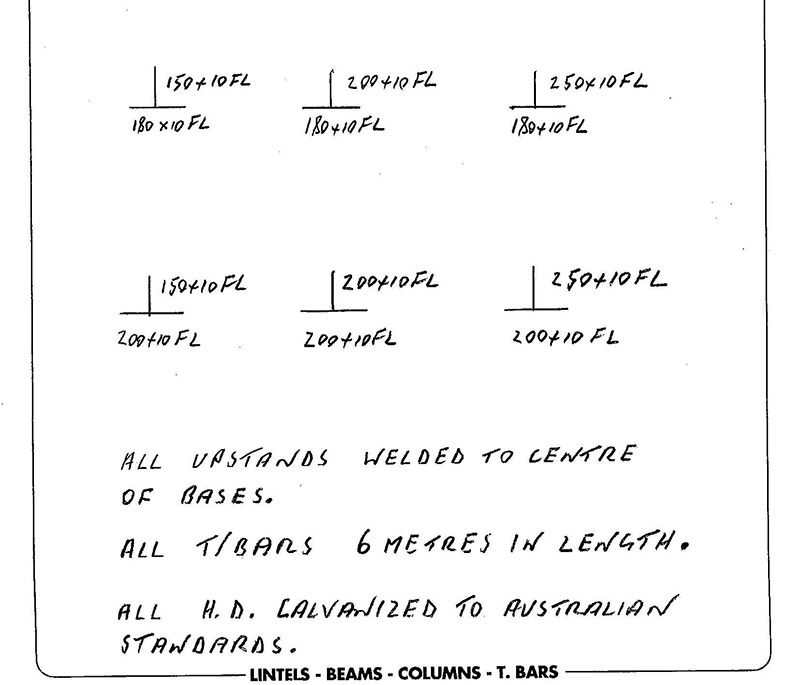 150x10FL 200x10FL 250x10FL
180x10FL 180x10FL 180x10FL
150x10FL 200x10FL 250x10FL
200x10FL 200x10FL 200x10 FL
ALL UPSTANDS WELDED TO CENTRE
OF BASES.
ALL T/BARS 6 METRES IN LENGTH.
ALL H.D. GALVANIZED TO AUSTRALIAN
STANDARDS.
LINTELS - BEAMS - COLUMNS - T. BARS